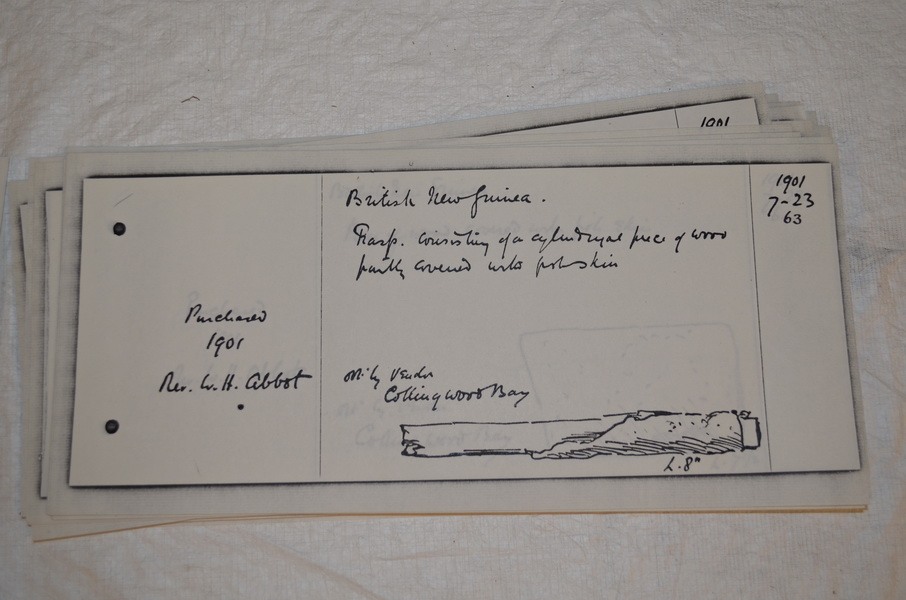 1901
British New Guinea.
1901
7-23
63
Rasp. consisting of a cylindrical piece of wood
partly covered with fish skin
Purchased
1901
Rev. W. H. Abbot
by Vendor
Collingwood Bay
L. 8"